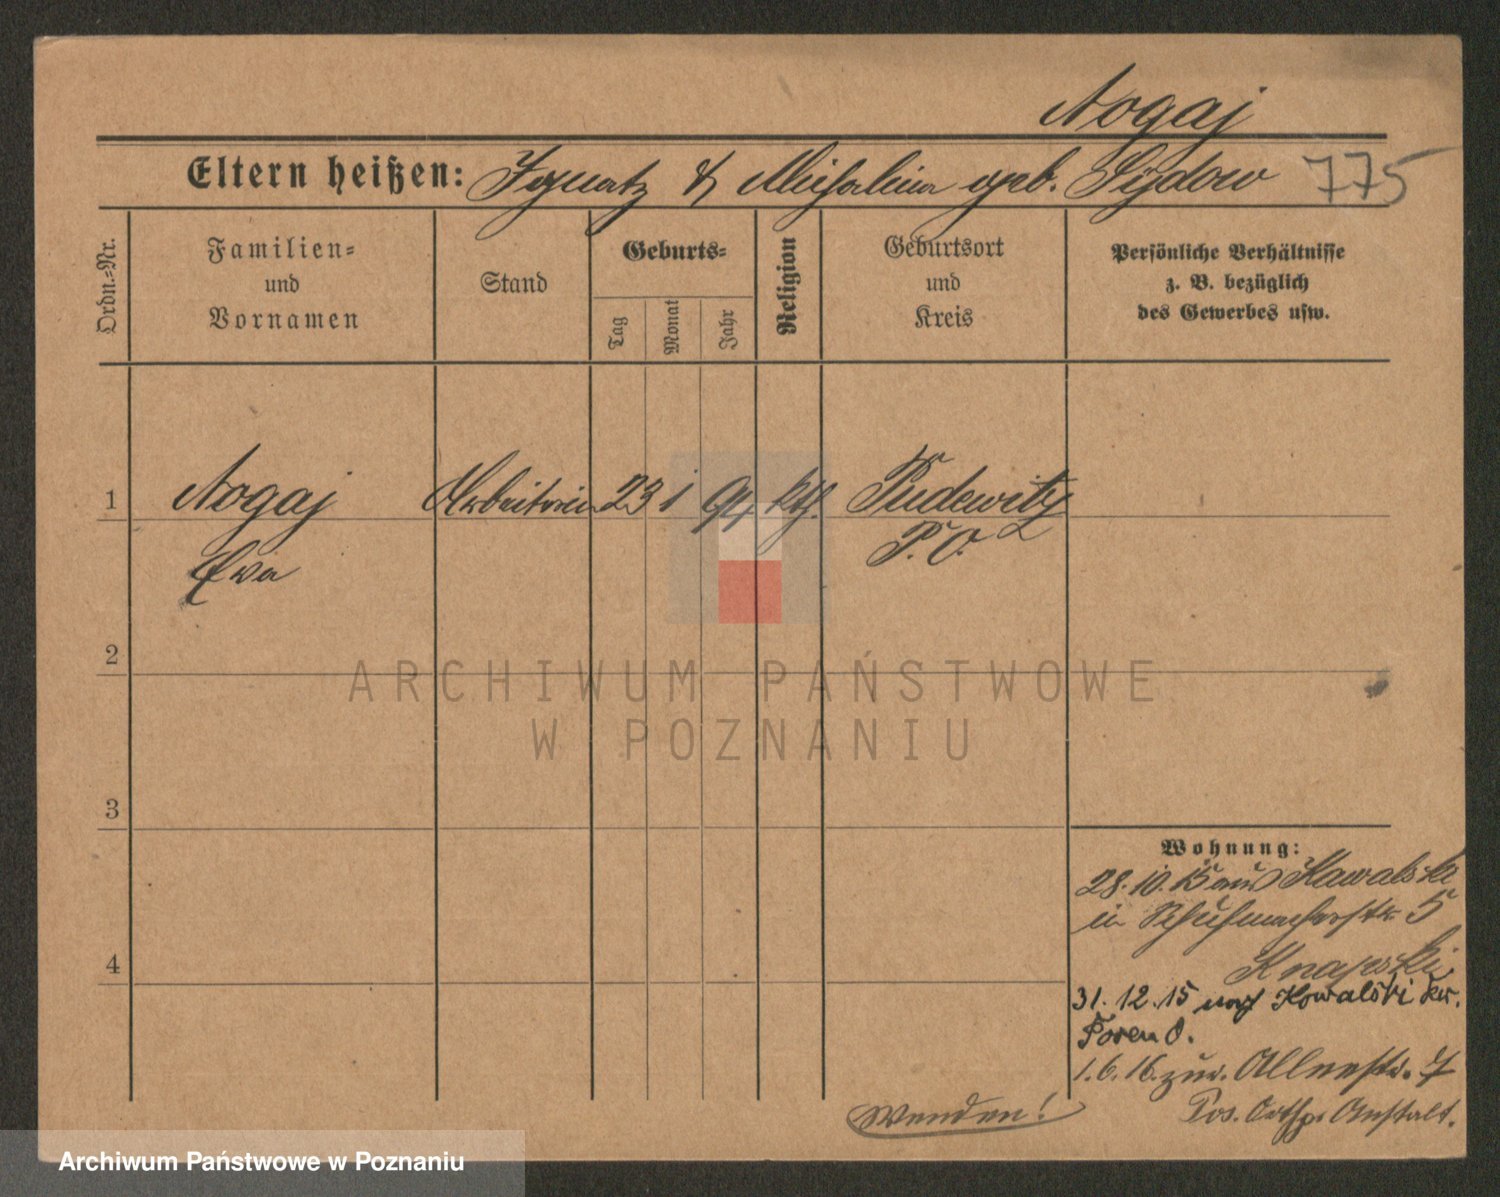 Nogaj
Eltern heißen: Ignatz & Michalina geb. Sydow 775
Ordn.=Nr.
Familien=
und
Vornamen
Stand
Geburts=
Tag
Monat
Jahr
Religion
Geburtsort
und
Kreis
Persönliche Verhältnisse
z. B. bezüglich
des Gewerbes usw.
1 Nogaj Arbeiterin 23 1 94 kth. Pudewitz
Eva P. O.
2
3
4
ARCHIWUM PAŃSTWOWE
W POZNANIU
Wohnung:
28.10.15 aus Kawalski
in Schuhmacherstr. 5
Knapski
31.12.15 nach Kowalski Kr.
Posen O.
1.6.16 zur. Alleestr. 7
Pos. Orthp. Anstalt.
Wenden!
Archiwum Państwowe w Poznaniu